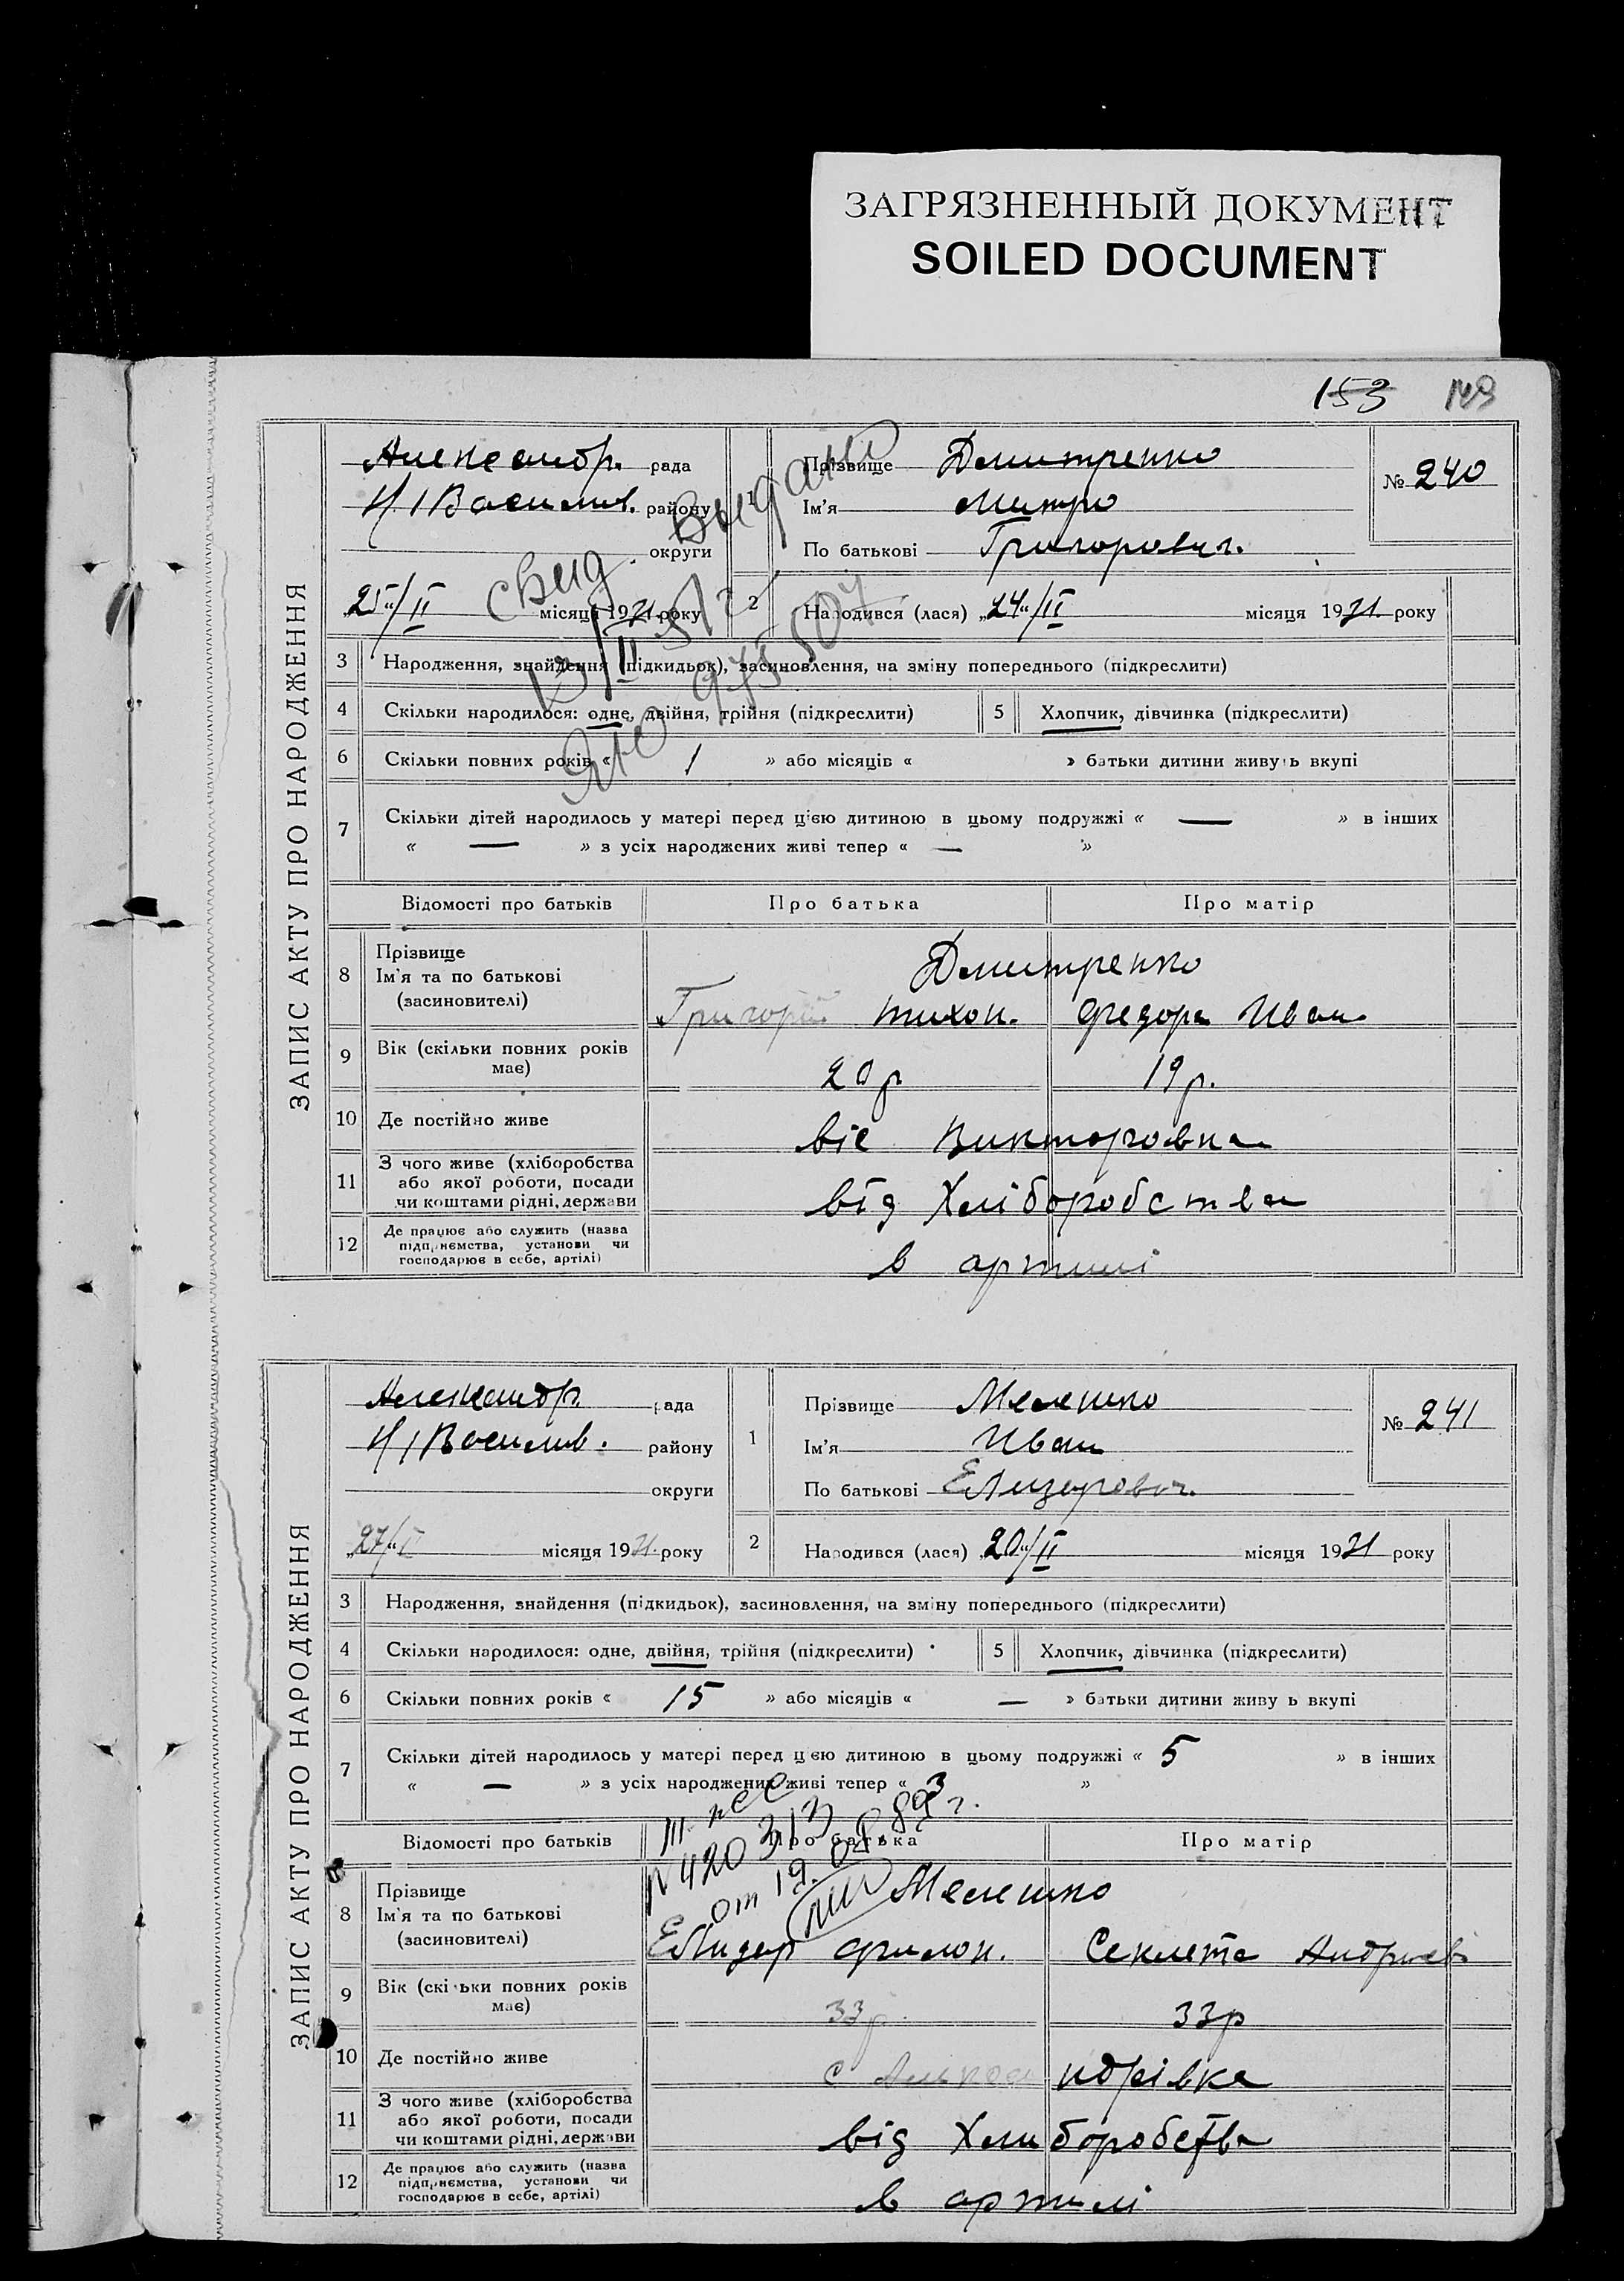 ЗАГРЯЗНЕННЫЙ ДОКУМЕНТ
SOILED DOCUMENT
153 149
ЗАПИС АКТУ ПРО НАРОДЖЕННЯ
Александр. рада
Н/Василів. району
округи
„25“/II місяця 1931 року
1
Прізвище Дмитренко
Ім'я Митро
По батькові Григорович.
№ 240
2 Народився (лася) „24“/II місяця 1931 року
свид. выдано
3 Народження, знайдення (підкидьок), засиновлення, на зміну попереднього (підкреслити)
4 Скільки народилося: одне, двійня, трійня (підкреслити) 5 Хлопчик, дівчинка (підкреслити)
6 Скільки повних років « 1 » або місяців « » батьки дитини живуть вкупі
7 Скільки дітей народилось у матері перед цією дитиною в цьому подружжі « — » в інших
« — » з усіх народжених живі тепер « — »
Відомості про батьків Про батька Про матір
8 Прізвище Ім'я та по батькові (засиновителі)
Дмитренко
Григорій тихон. Федора Иван.
9 Вік (скільки повних років має) 20 р 19 р.
10 Де постійно живе віс Викторовка
11 З чого живе (хліборобства або якої роботи, посади чи коштами рідні, держави від Хліборобства
12 Де працює або служить (назва підприємства, установи чи господарює в себе, артілі) в артилі
ЗАПИС АКТУ ПРО НАРОДЖЕННЯ
Александр. рада
Н/Василів. району
округи
„27“/II місяця 1931 року
1
Прізвище Мелешко
Ім'я Иван
По батькові Елизарович.
№ 241
2 Народився (лася) „20“/II місяця 1931 року
3 Народження, знайдення (підкидьок), засиновлення, на зміну попереднього (підкреслити)
4 Скільки народилося: одне, двійня, трійня (підкреслити) 5 Хлопчик, дівчинка (підкреслити)
6 Скільки повних років « 15 » або місяців « — » батьки дитини живуть вкупі
7 Скільки дітей народилось у матері перед цією дитиною в цьому подружжі « 5 » в інших
« — » з усіх народжених живі тепер « 3 »
Відомості про батьків Про батька Про матір
N 420313
8 Прізвище Ім'я та по батькові (засиновителі)
Мелешко
Елизар Филон. Секлета Андриев.
9 Вік (скільки повних років має) 33 р. 33 р
10 Де постійно живе с Александрівка
11 З чого живе (хліборобства або якої роботи, посади чи коштами рідні, держави від Хлиборобства
12 Де працює або служить (назва підприємства, установи чи господарює в себе, артілі) в артилі